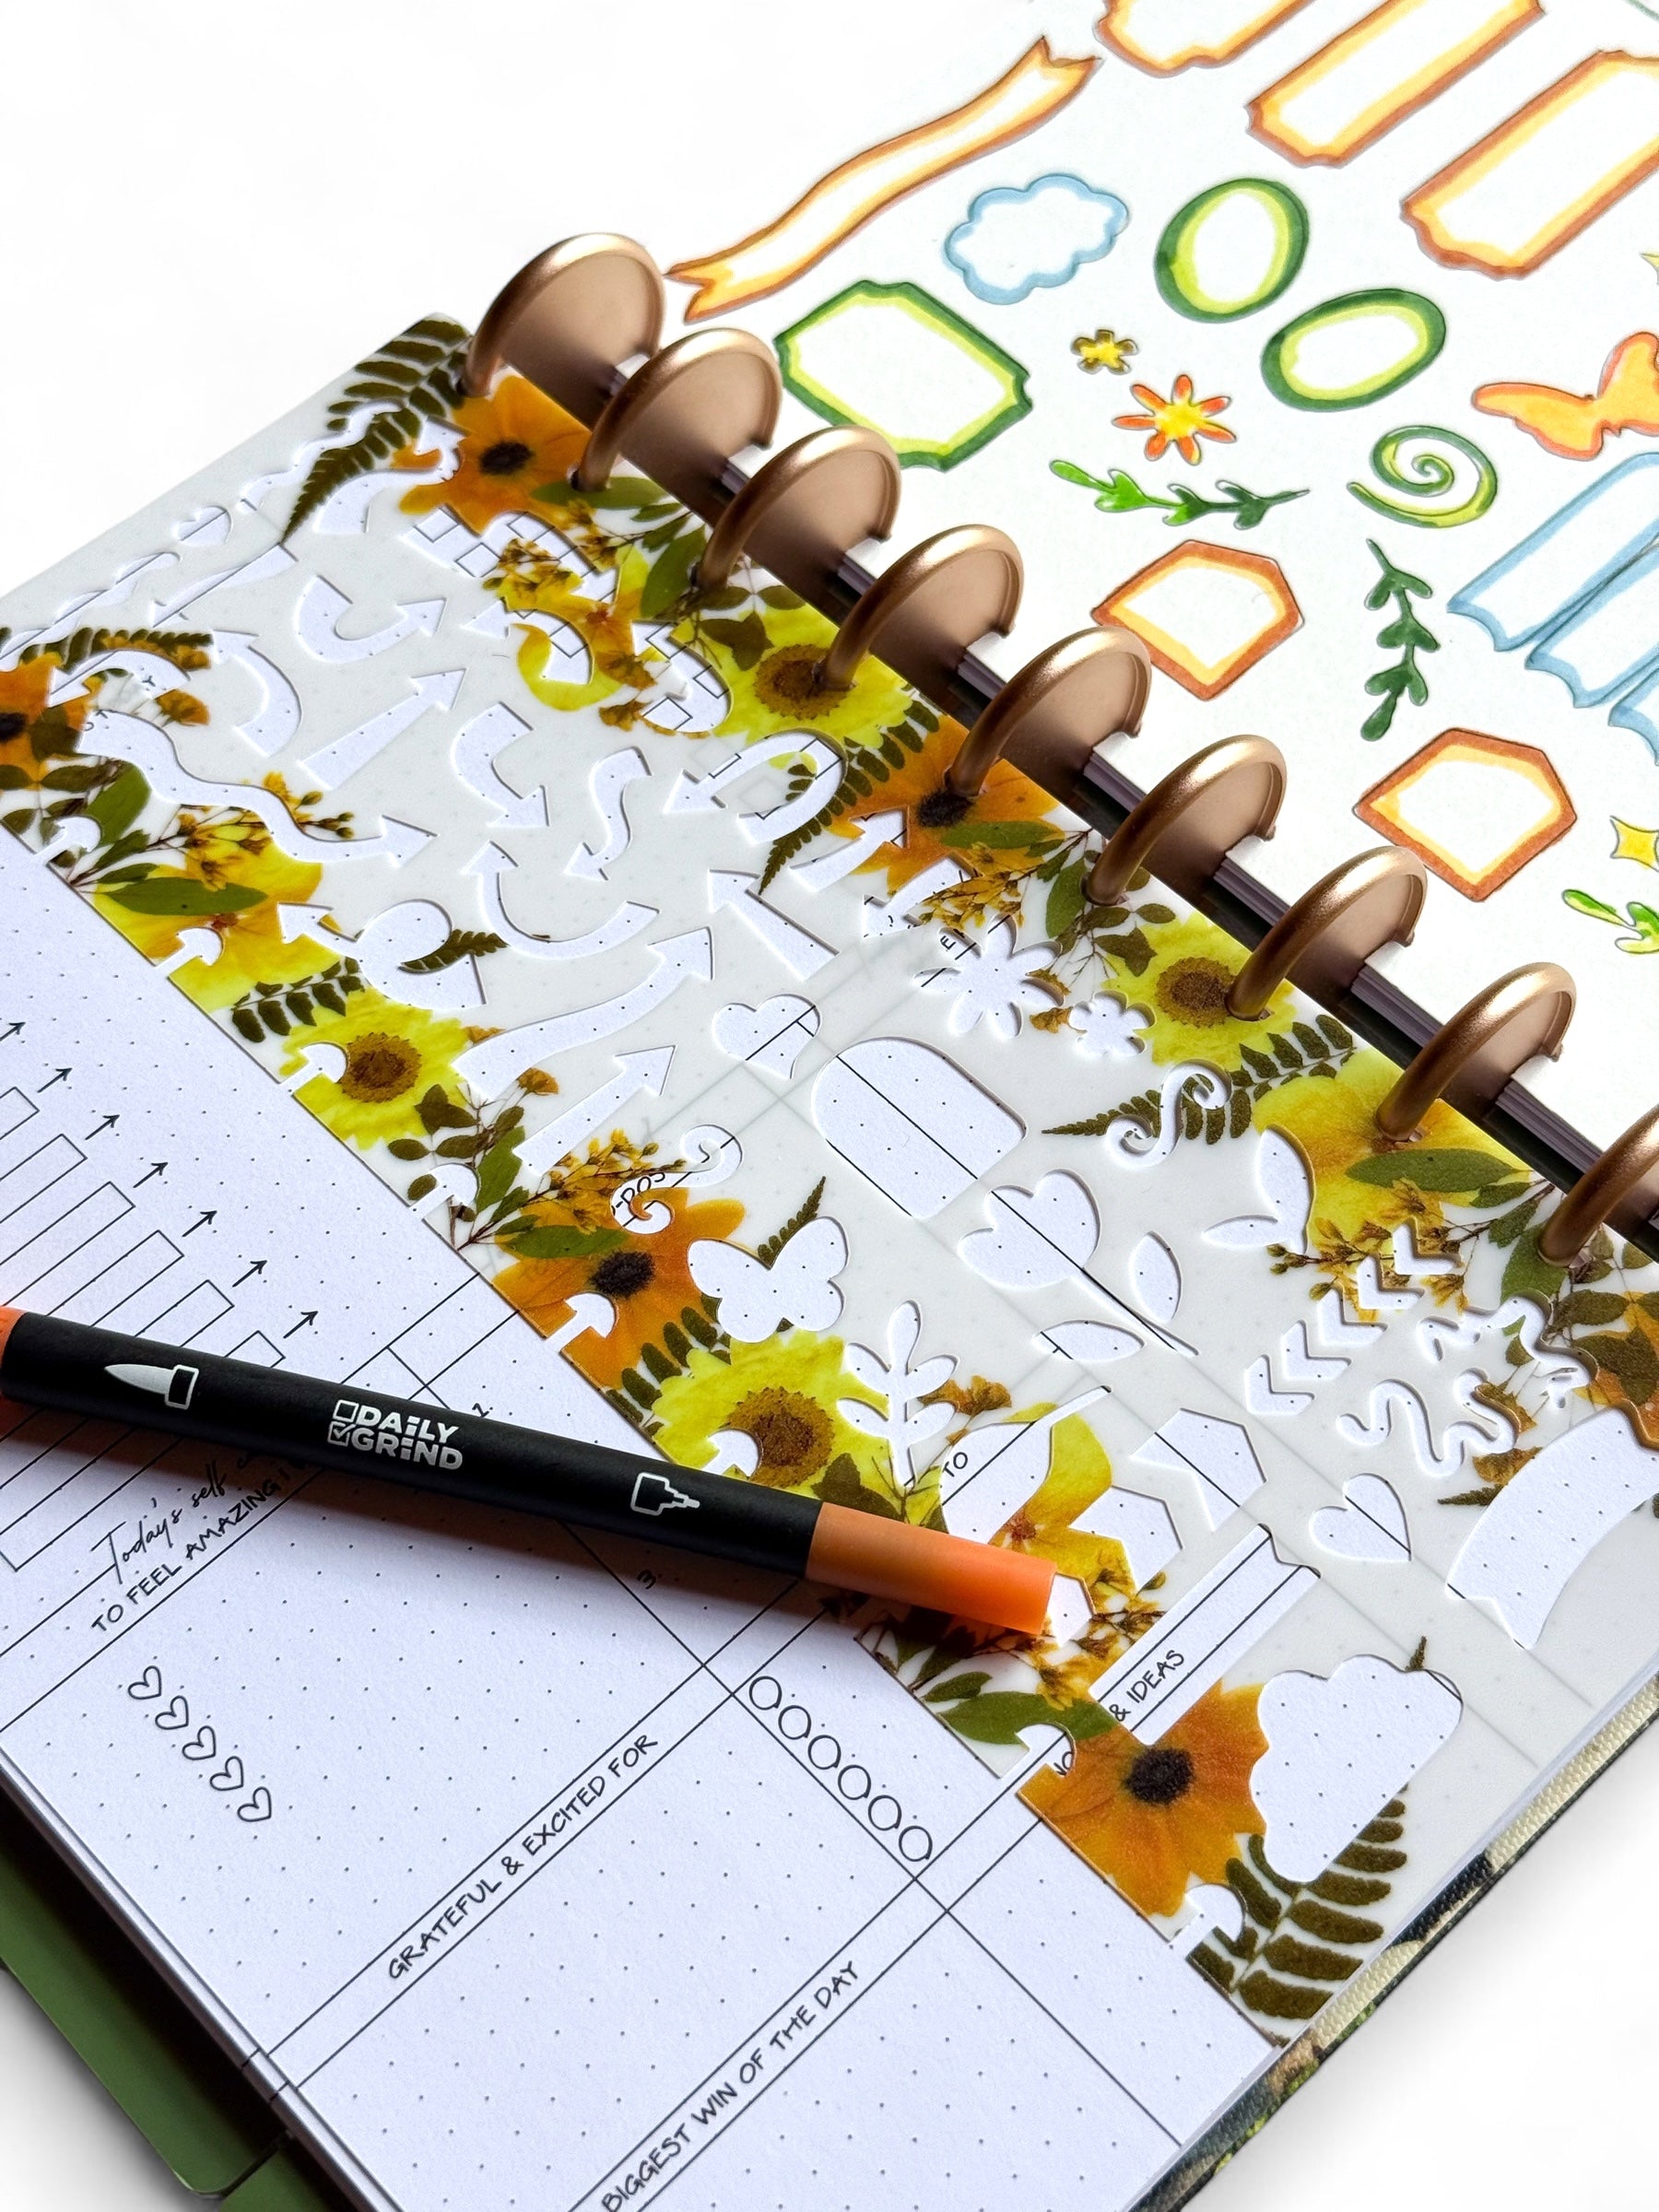 DAILY
GRIND
Today's self
TO FEEL AMAZING I
1.
3.
TO
& IDEAS
GRATEFUL & EXCITED FOR
BIGGEST WIN OF THE DAY